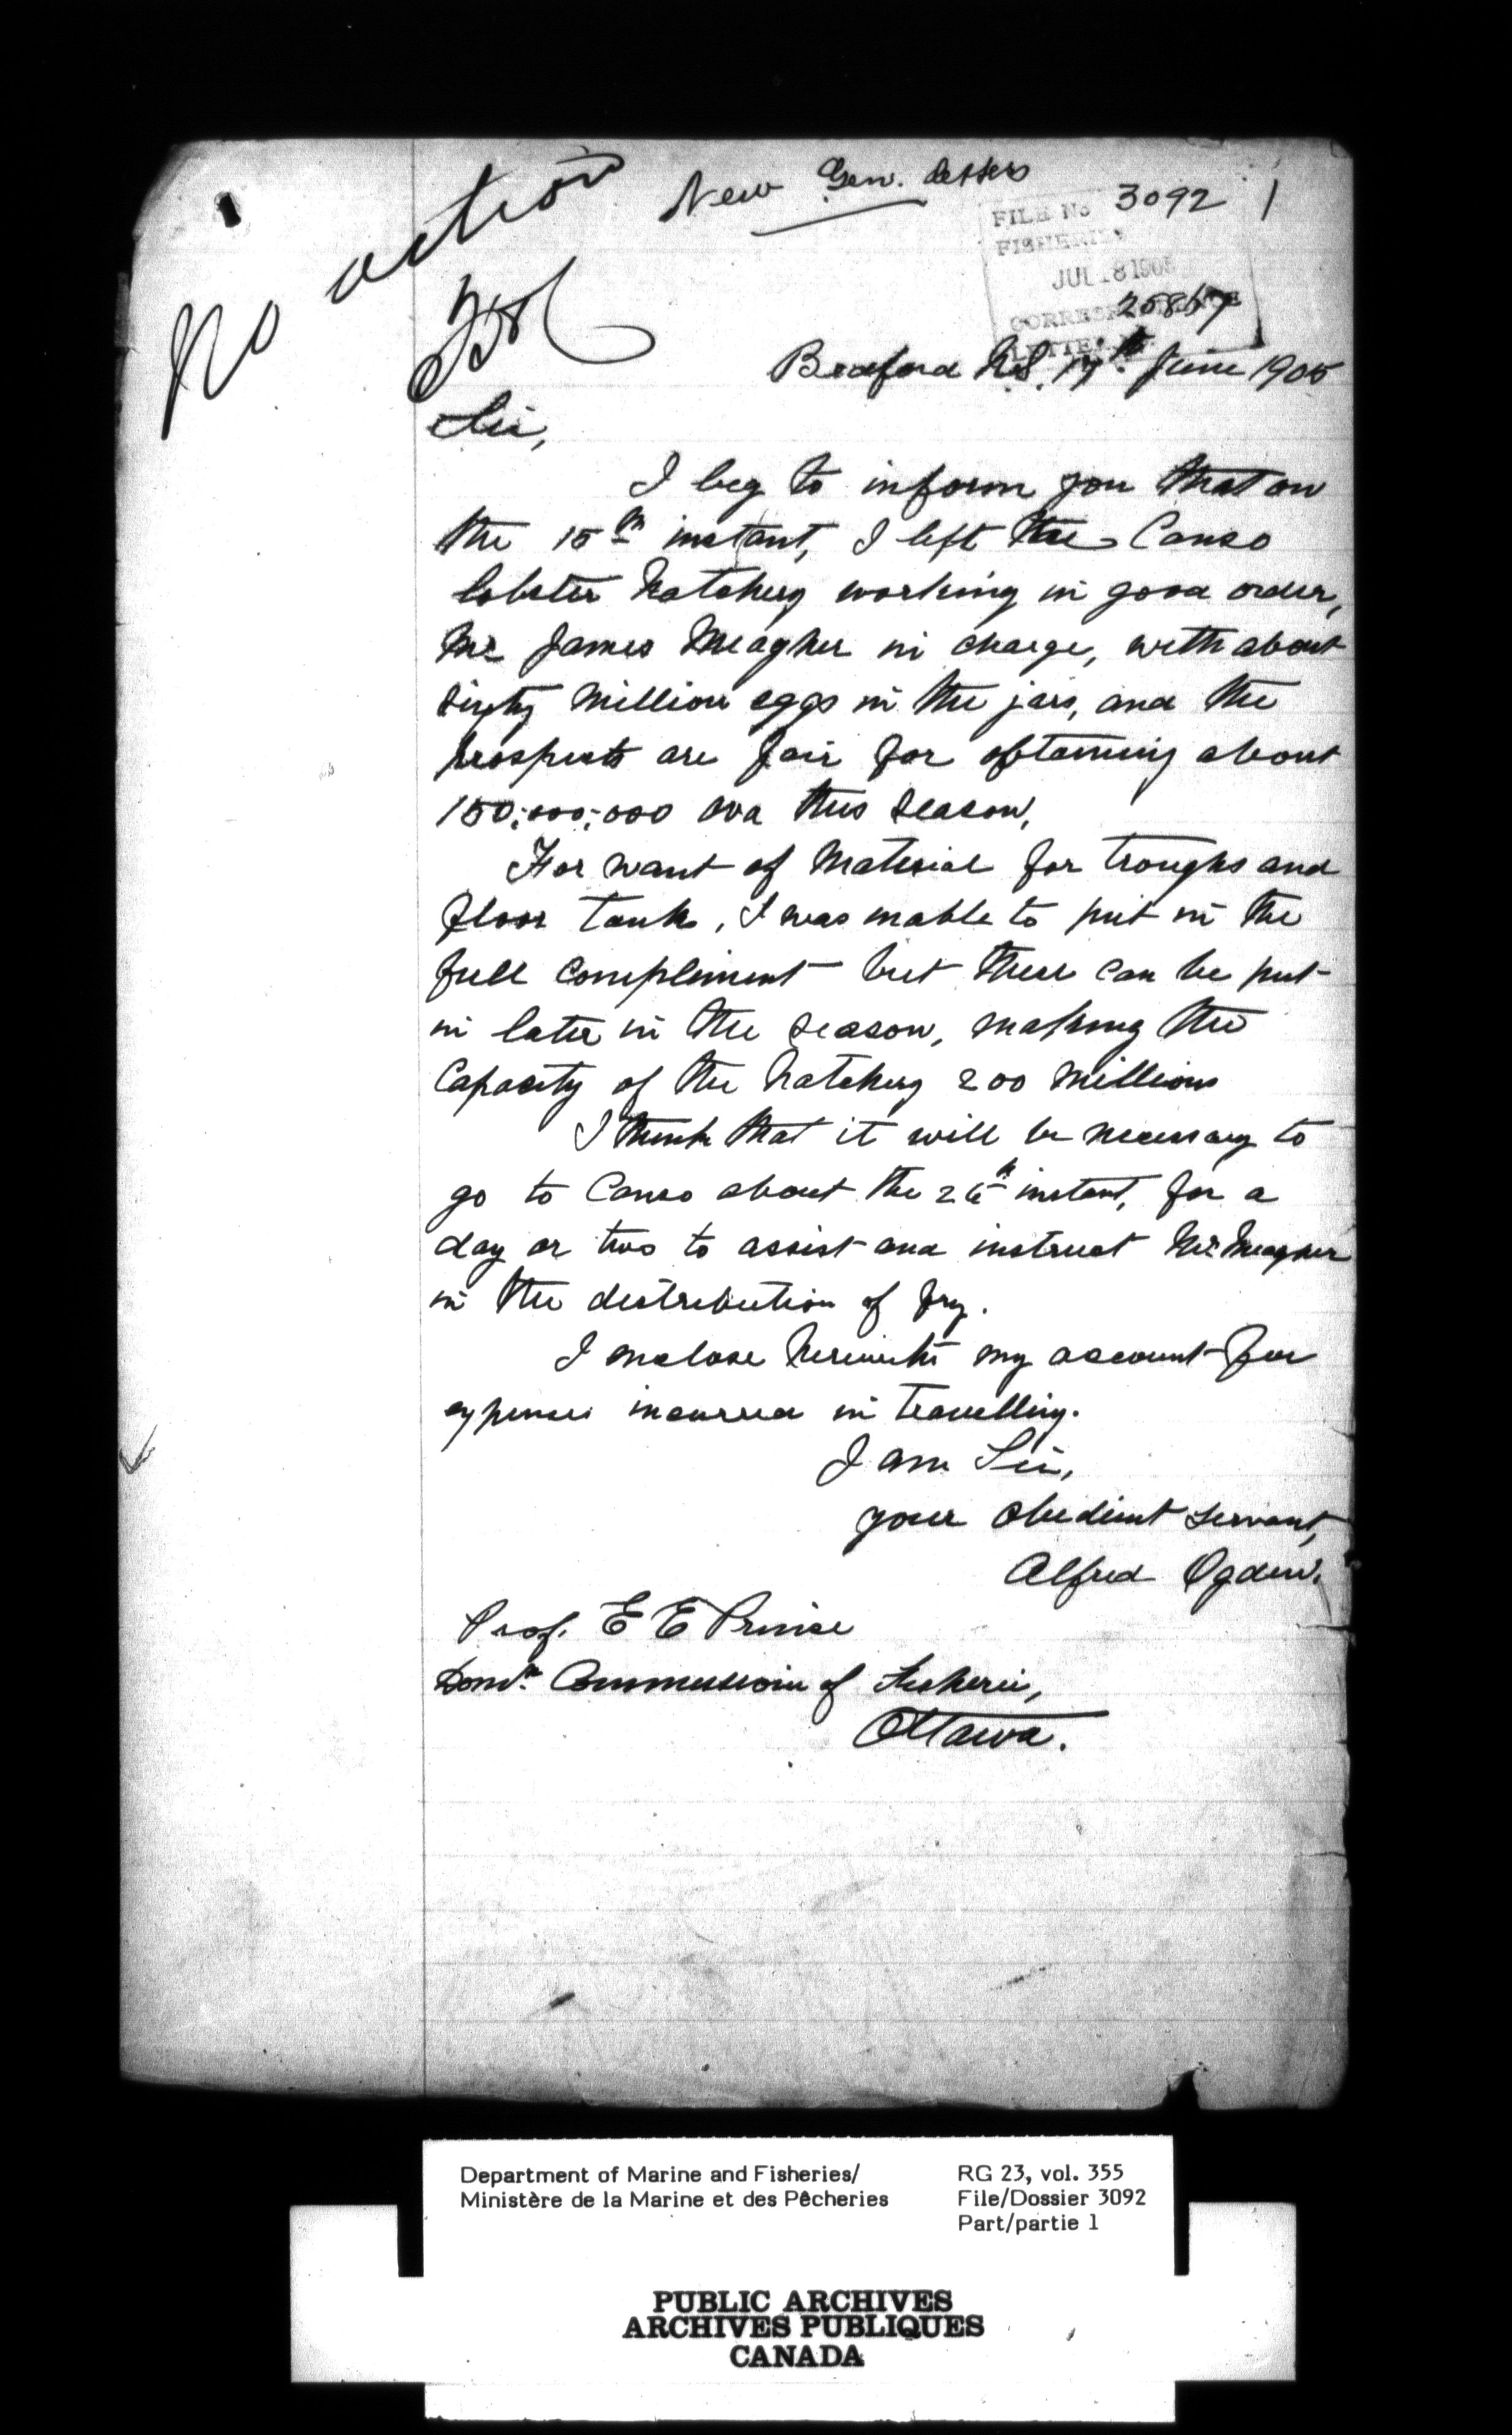 No action
New Gen. Letters
FILE No 3092 1
FISHERIES
JUL 18 1905
25867
CORRESPONDENCE
Bedford N.S. 17th June 1905
Sir,
I beg to inform you that on
the 15th instant, I left the Canso
lobster hatchery working in good order,
Mr James Meagher in charge, with about
sixty million eggs in the jars, and the
prospects are fair for obtaining about
150,000,000 ova this season,
For want of material for troughs and
floor tank, I was unable to put in the
full compliment but these can be put
in later in the season, making the
Capacity of the hatchery 200 millions
I think that it will be necessary to
go to Canso about the 26th instant, for a
day or two to assist and instruct Mr Meagher
in the distribution of fry.
I enclose herewith my account for
expenses incurred in travelling.
I am Sir,
your obedient servant,
Alfred Ogden.
Prof. E E Prince
Domn. Commissioner of Fisheries,
Ottawa.
Department of Marine and Fisheries/ RG 23, vol. 355
Ministère de la Marine et des Pêcheries File/Dossier 3092
Part/partie 1
PUBLIC ARCHIVES
ARCHIVES PUBLIQUES
CANADA